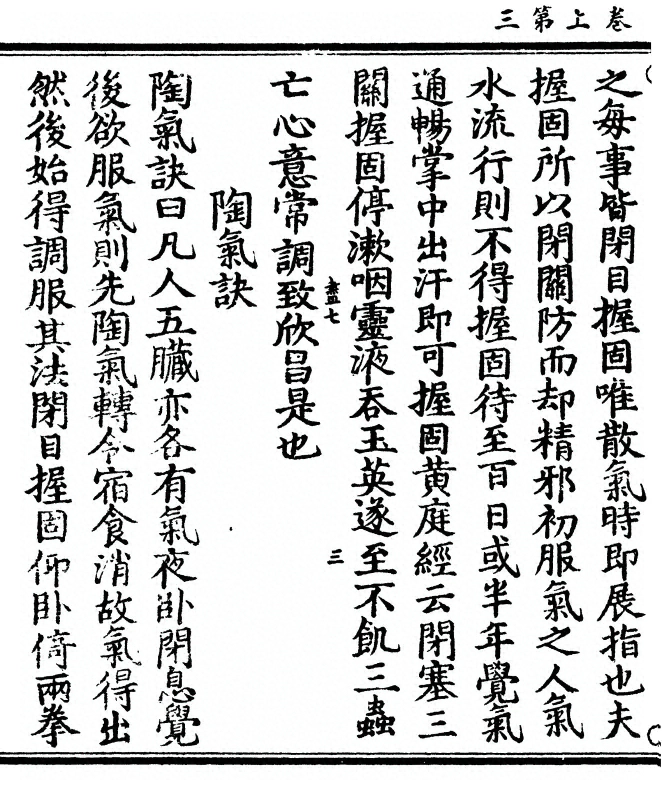 卷上第三
之每事皆閉目握固唯散氣時即展指也夫
握固所以閉關防而却精邪初服氣之人氣
水流行則不得握固待至百日或半年覺氣
通暢掌中出汗即可握固黄庭經云閉塞三
關握固停漱咽靈液吞玉英遂至不飢三蟲
亡心意常調致欣昌是也
盡七
三
陶氣訣
陶氣訣曰凡人五臟亦各有氣夜卧閉息覺
後欲服氣則先陶氣轉令宿食消故氣得出
然後始得調服其法閉目握固仰卧倚兩拳